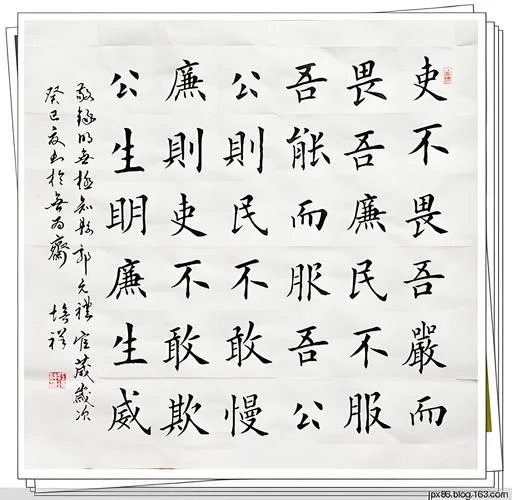 吏不畏吾嚴而
畏吾廉民不服
吾能而服吾公
公則民不敢慢
廉則吏不敢欺
公生明廉生威
敬錄明無極知縣郭允禮官箴歲次
癸巳夏書於無為齋 培祥
jpx86.blog.163.com